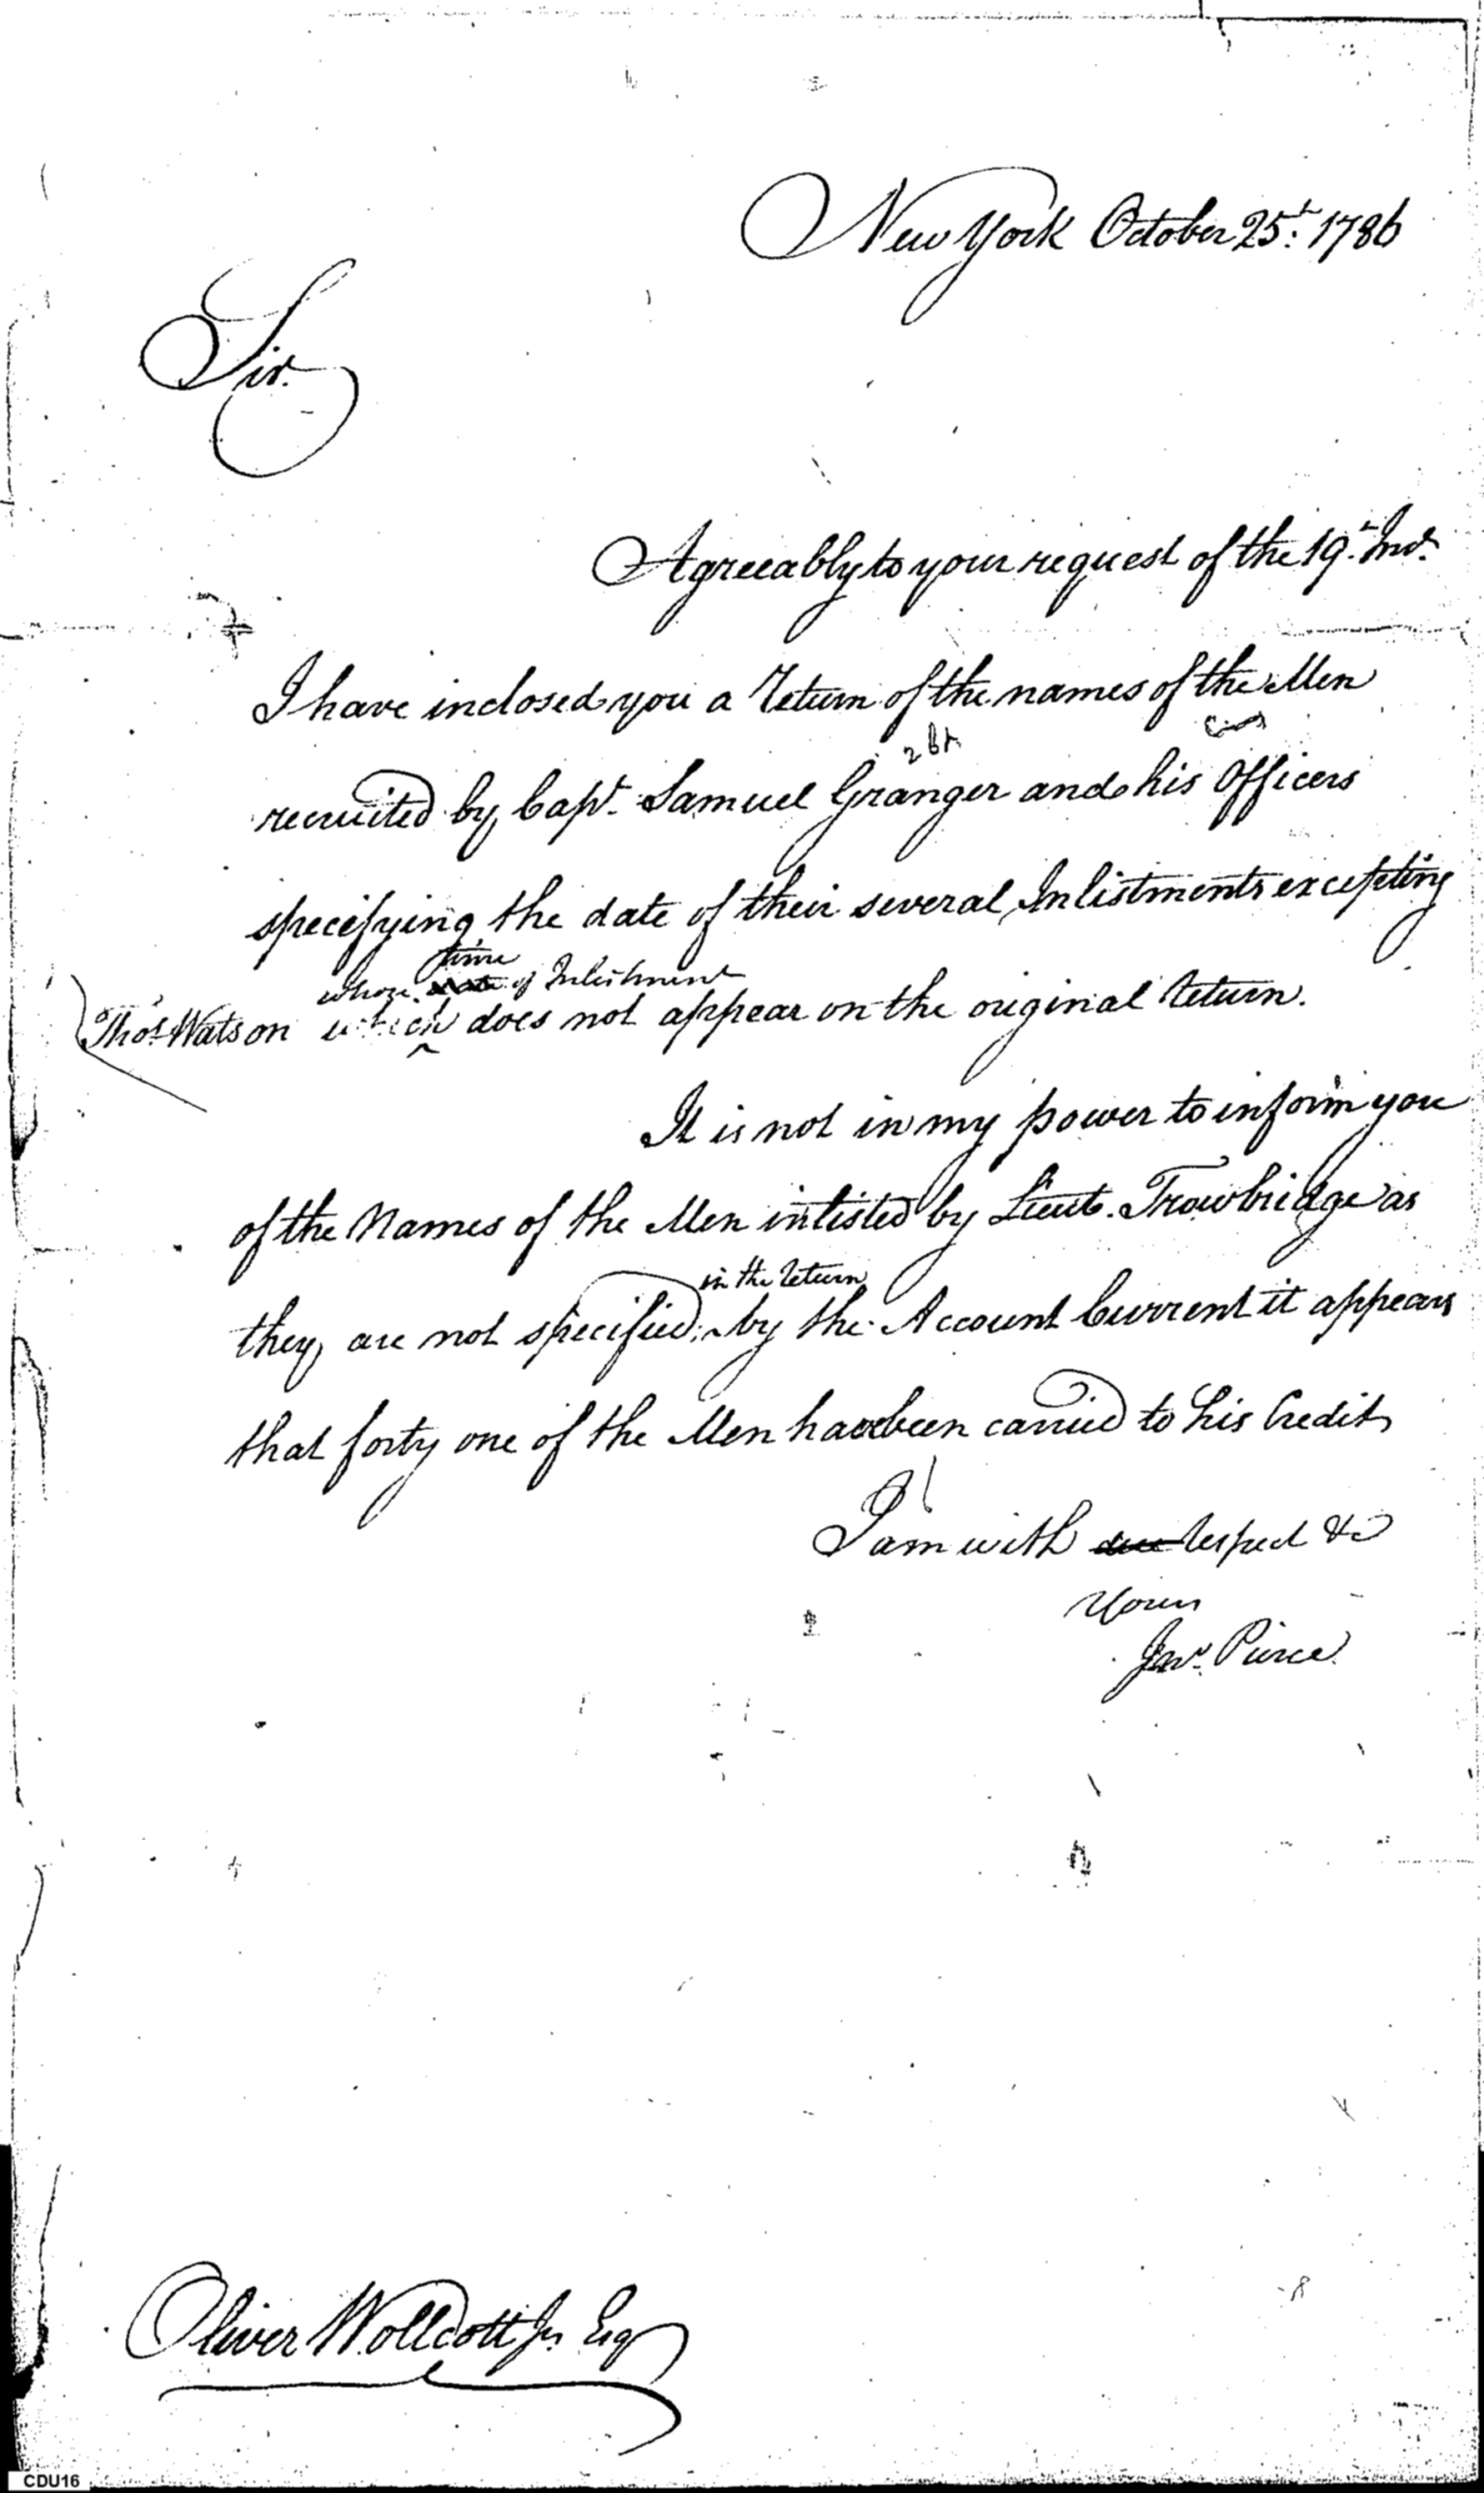 New York October 25th. 1786
Sir.
Agreeably to your request of the 19th. Inst.
I have inclosed you a Return of the names of the Men
recruited by Capt. Samuel Granger and his Officers
specifying the date of their several Inlistments excepting
whose time of Inlistment
Thos. Watson which does not appear on the original Return.
It is not in my power to inform you
of the Names of the Men inlisted by Lieut. Trowbridge as
in the Return
they are not specified; by the Account Current it appears
that forty one of the Men have been carried to his Credit
I am with due respect &c
Yours
Jno. Pierce.
Oliver Wollcott Jr. Esq
CDU16